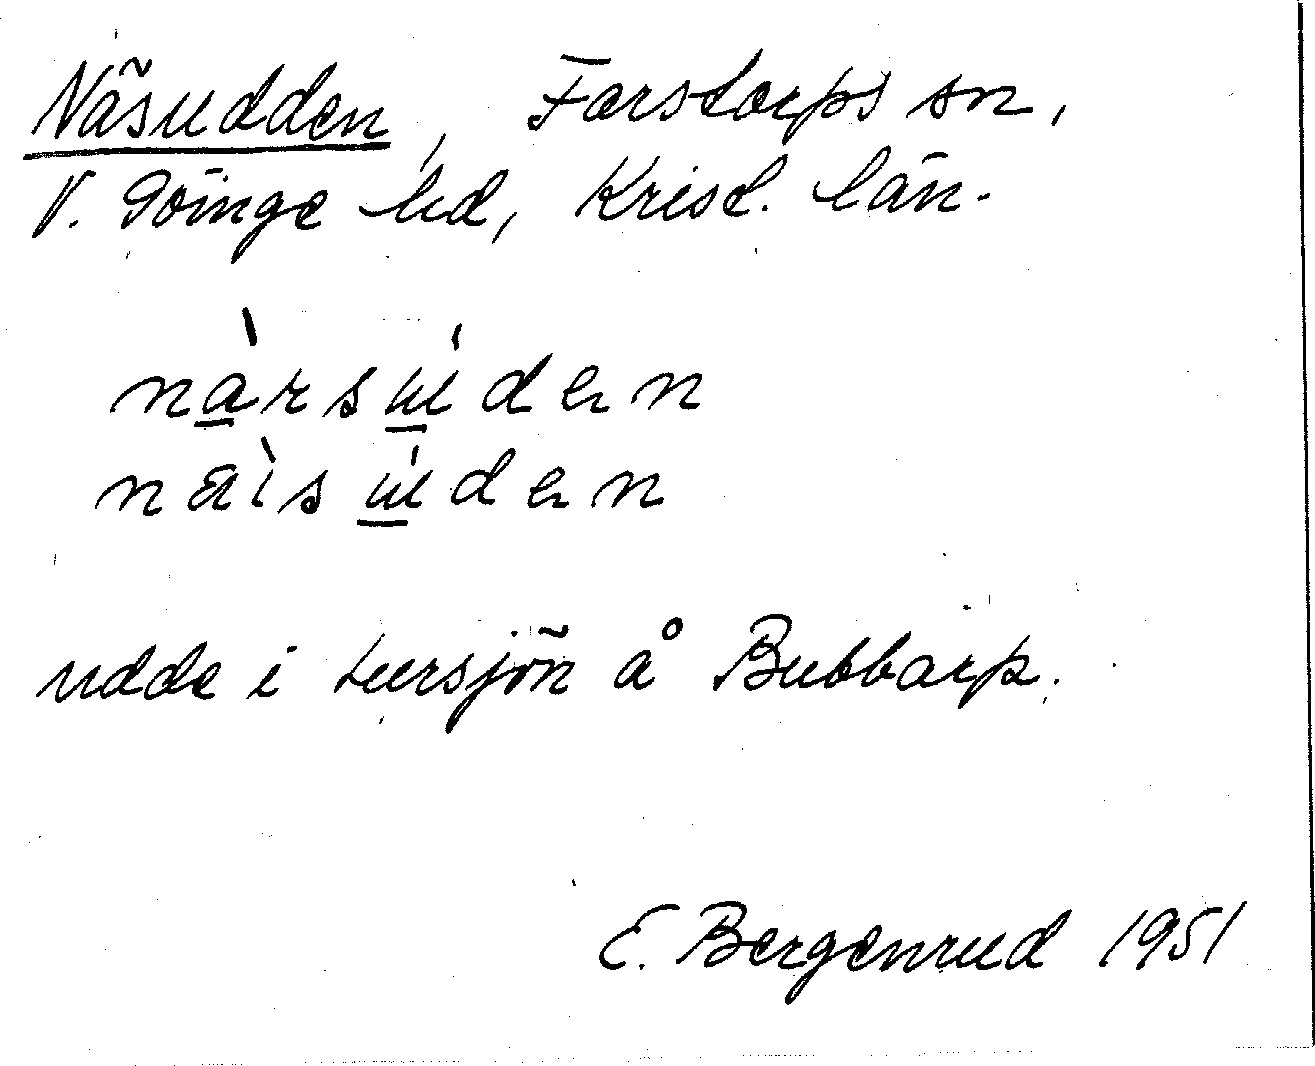 Näsudden, Farstorps sn,
V. Göinge hd, Krist. län.
nàrsúden
näìsúden
udde i Lursjön å Bubbarp.
E. Bergenrud 1951